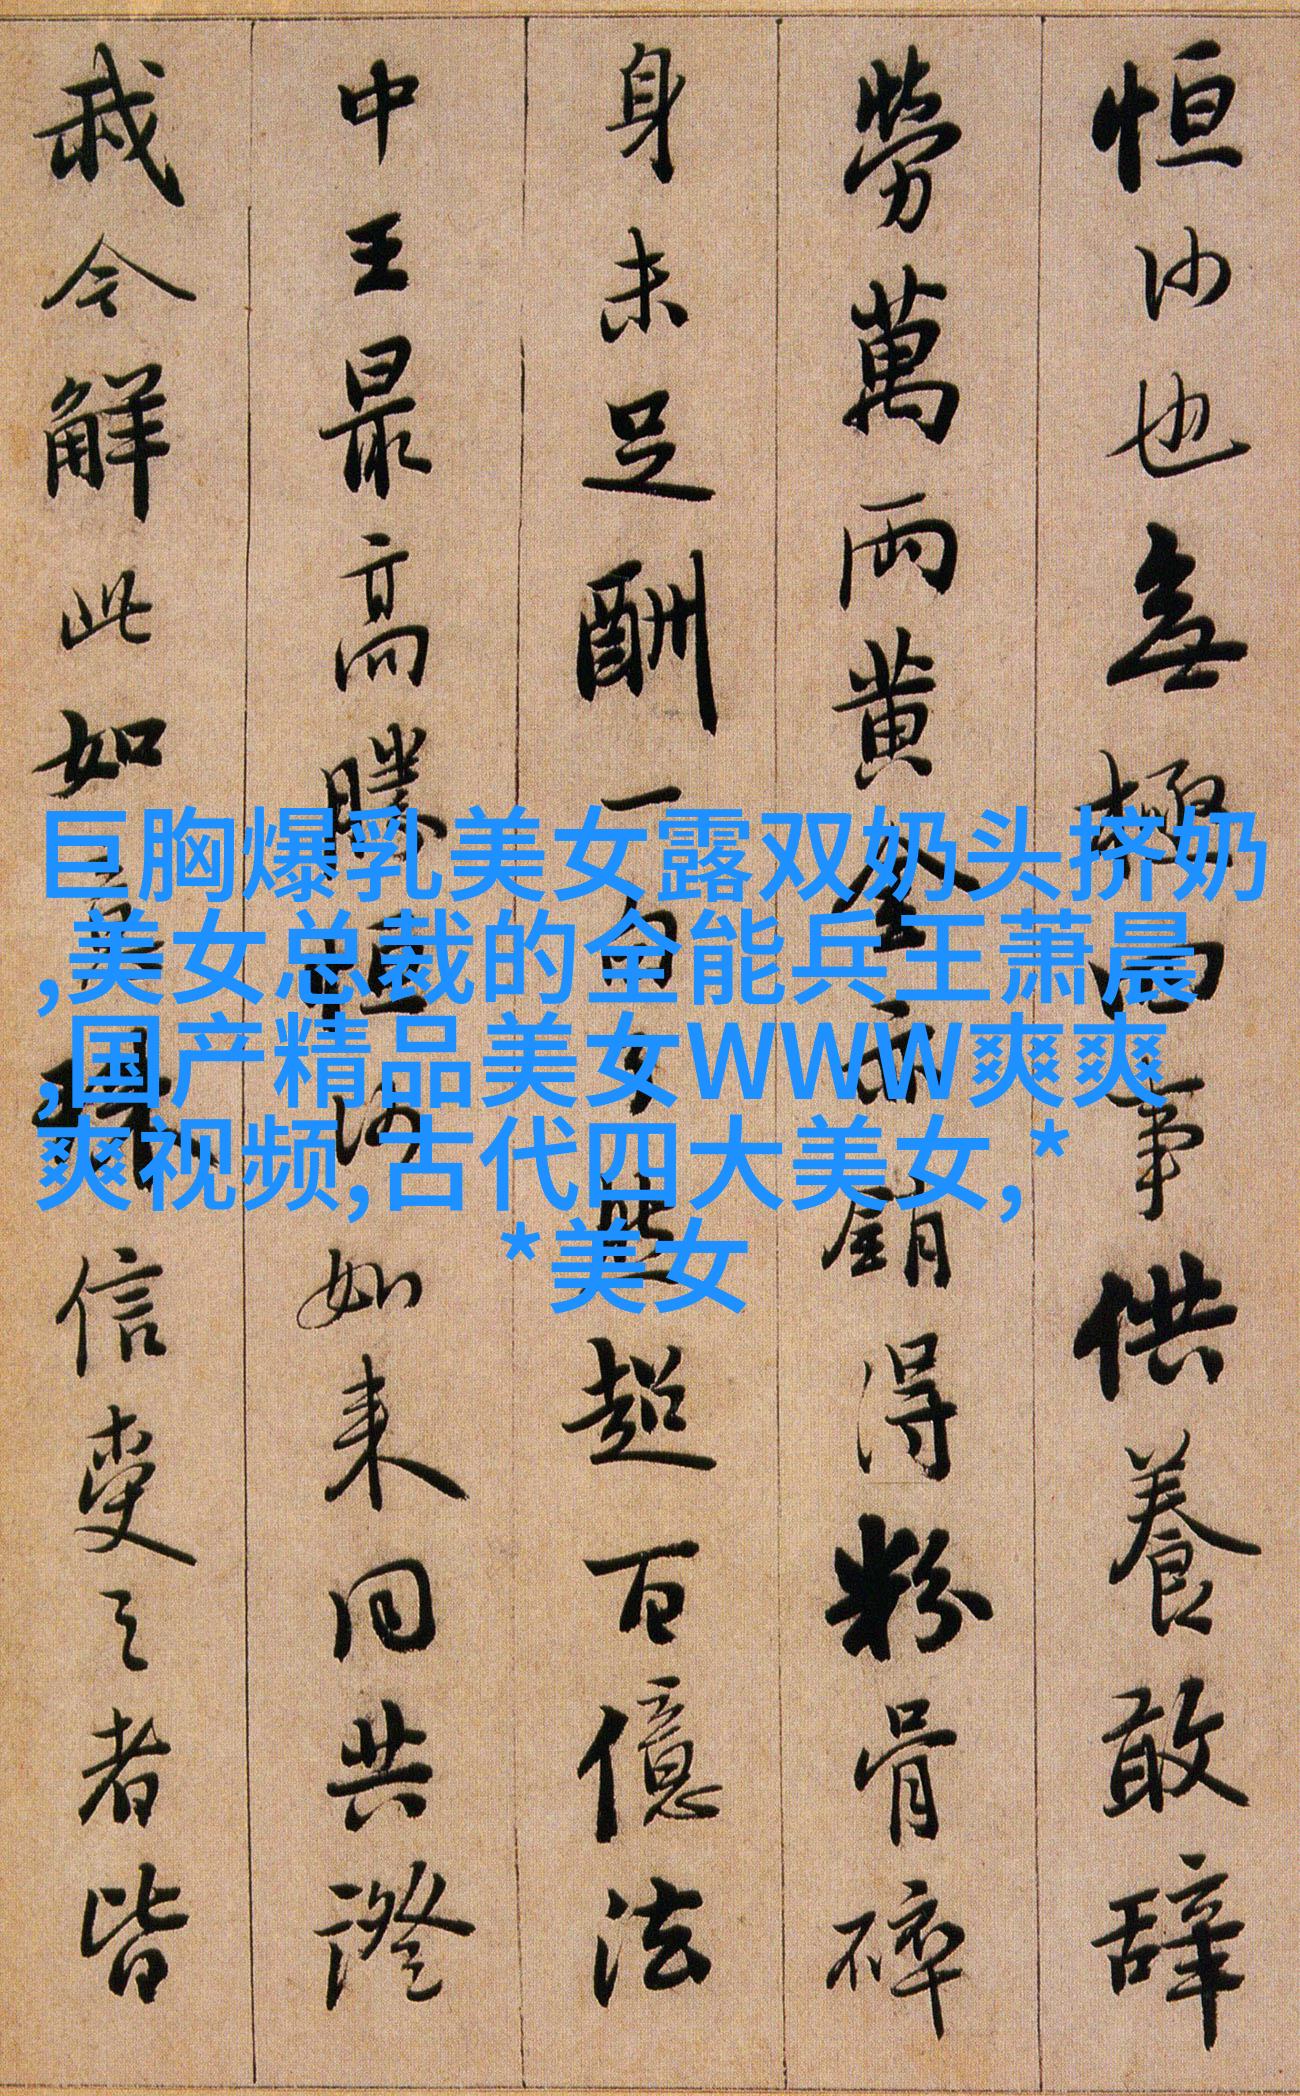 恒沙也無極四事供養敢辭
勞萬兩黃金亦銷得粉骨碎
身未足酬一句了然超百億法
中王最高勝恒沙如来同共證
我今解此如意珠信受之者皆
巨胸爆乳美女露双奶头挤奶
,美女总裁的全能兵王萧晨
,国产精品美女WWW爽爽
爽视频,古代四大美女, *
*美女